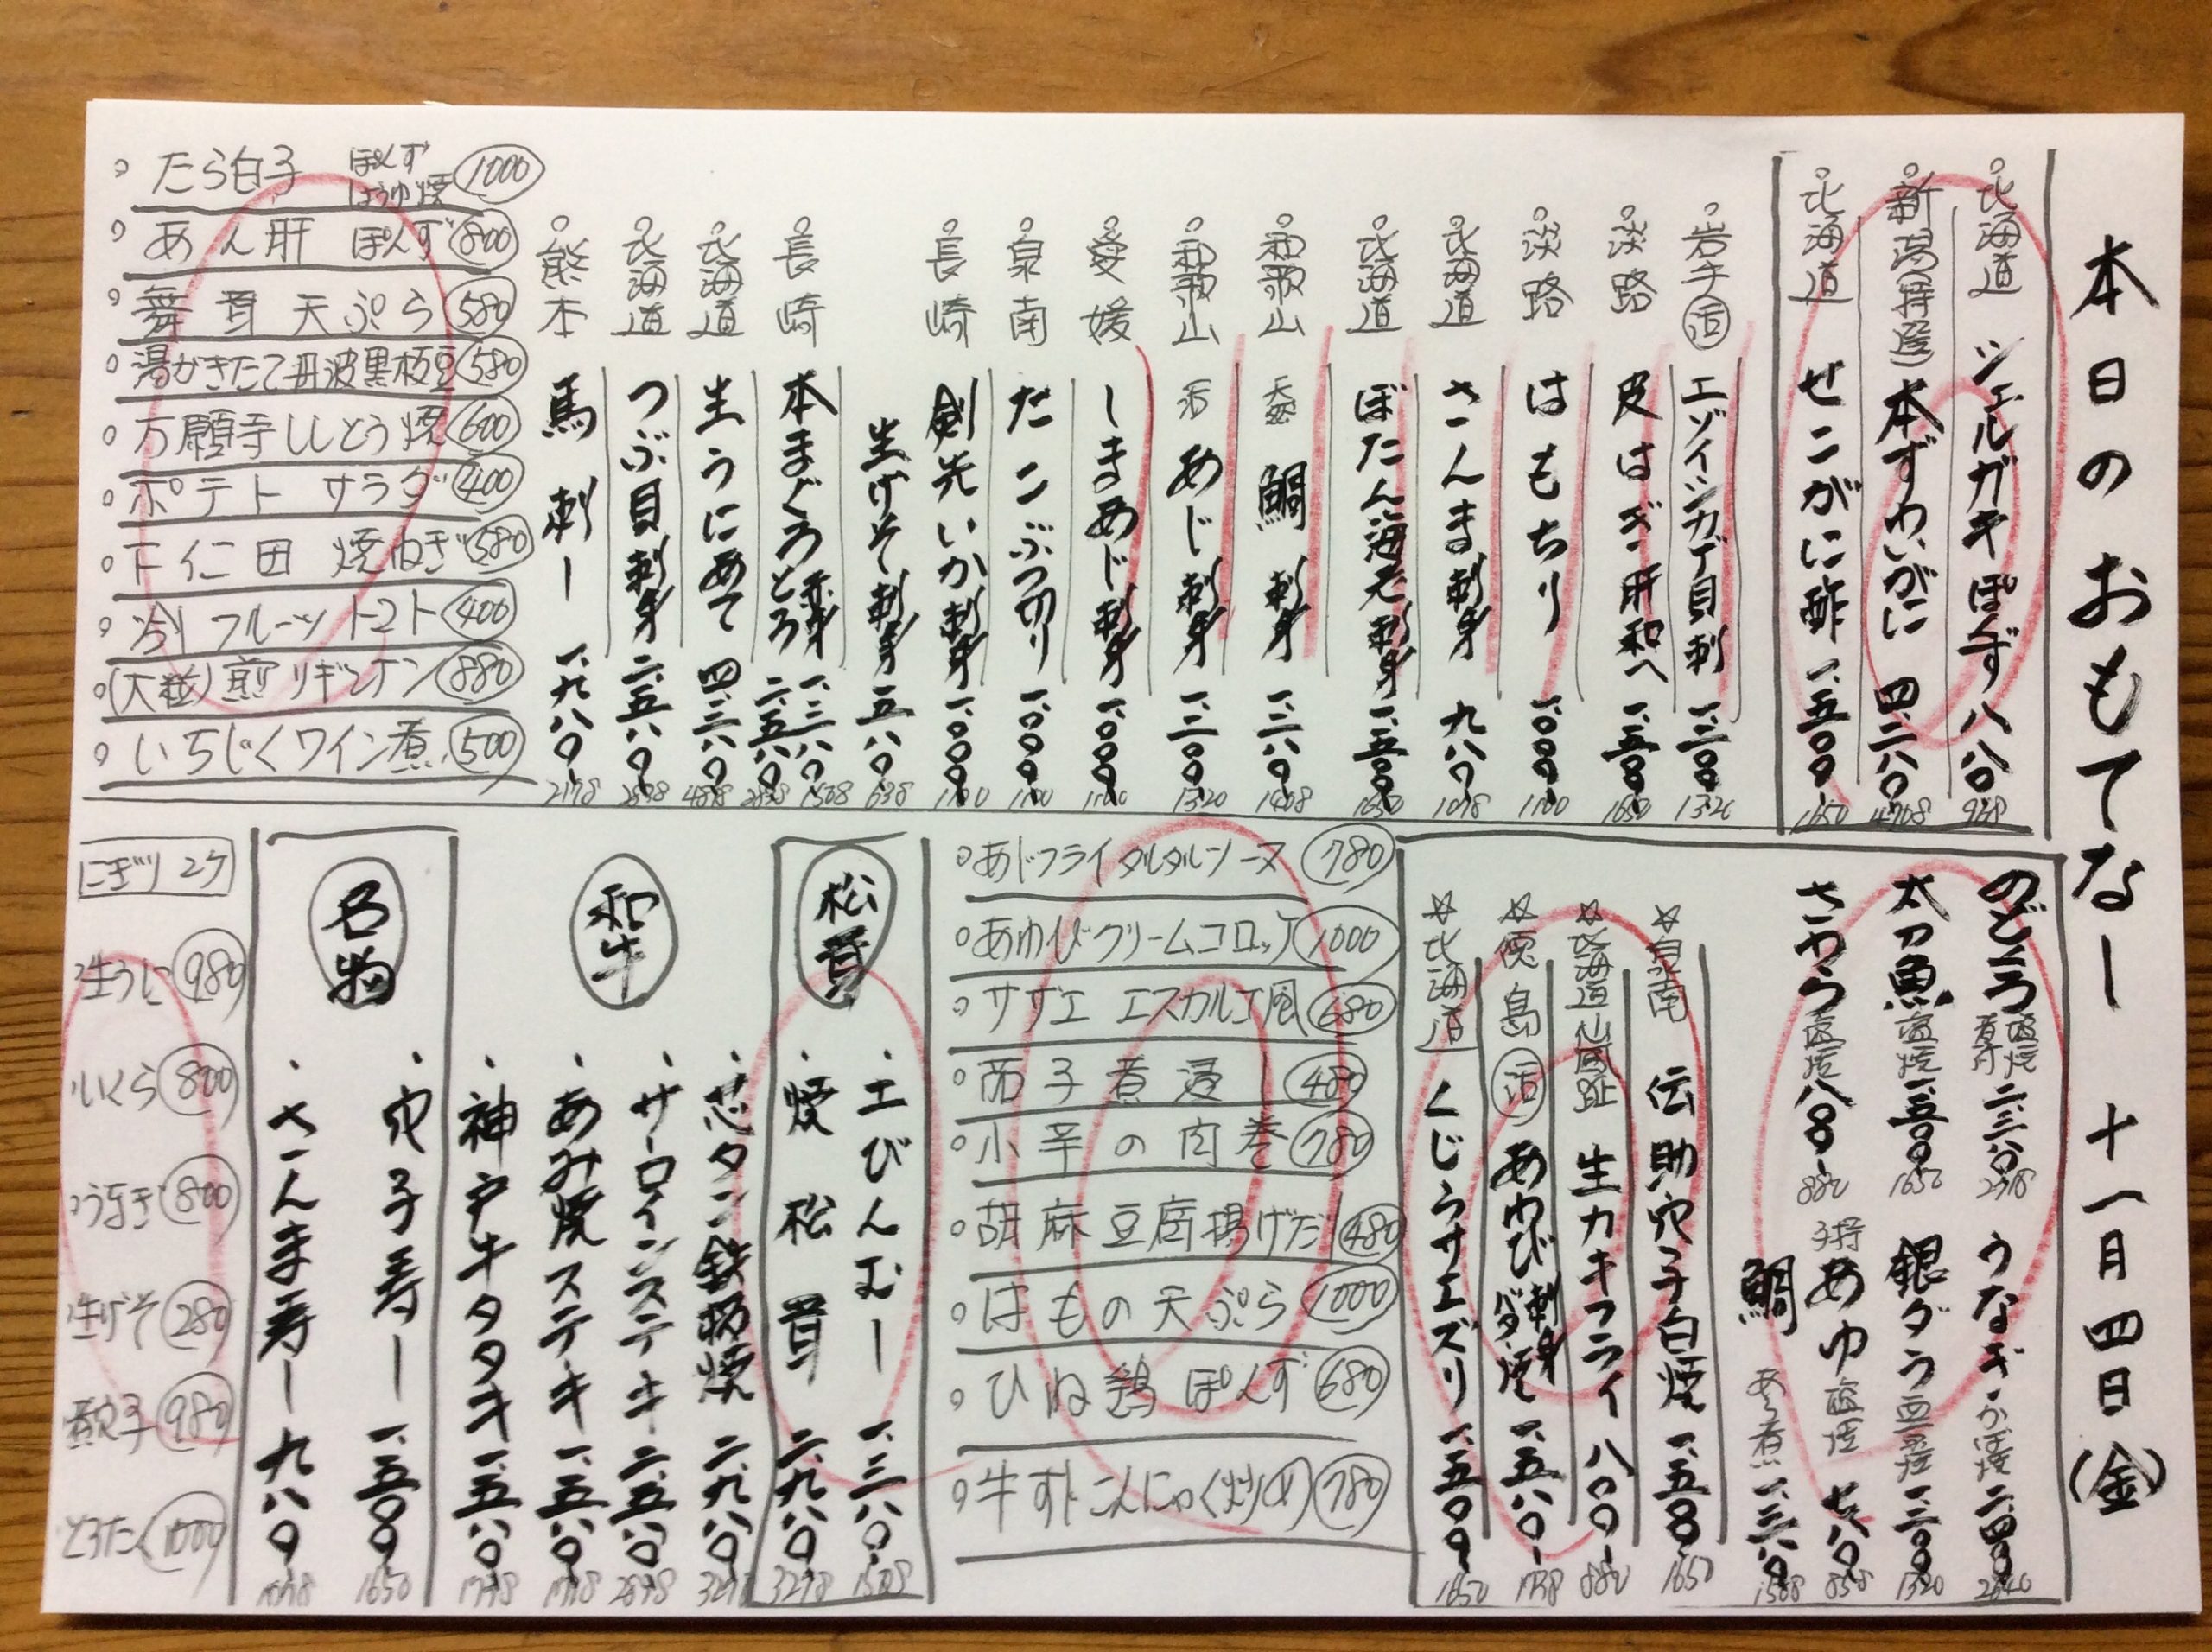 本日のおもてなし 十一月四日(金)
北海道 シェルガキぽんず 八八〇 968
新潟(特選) 本ずわいがに 四.二八〇 4708
北海道 せこがに酢 一.五〇〇 1650
岩手(活) エゾイシカゲ貝刺 一.二〇〇 1320
淡路 皮はぎ肝和へ 一.五〇〇 1650
淡路 はもちり 一.〇〇〇 1100
北海道 さんま刺身 九八〇 1078
北海道 ぼたん海老刺身 一.五〇〇 1650
和歌山 天然 鯛 刺身 一.二八〇 1408
和歌山 活 あじ刺身 一.二〇〇 1320
愛媛 しまあじ刺身 一.〇〇〇 1100
泉南 たこぶつ切り 一.〇〇〇 1100
長崎 剣先いか刺身 一.〇〇〇 1100
生げそ刺身 五八〇 638
長崎 本まぐろ 赤身 一.三八〇 1508
とろ 二.五八〇 2838
北海道 生うにあて 四.三八〇 4818
北海道 つぶ貝刺身 二.五八〇
熊本 馬刺し 一.九八〇 2178
たら白子 ぽんず しょうゆ焼 1000
あん肝 ぽんず 800
舞茸 天ぷら 580
湯がきたて丹波黒枝豆 580
万願寺ししとう焼 600
ポテトサラダ 400
下仁田 焼ねぎ 580
冷 フルーツトマト 400
(大粒)煎りギンナン 880
いちじくワイン煮 500
のどぐろ 塩焼 煮付 二.三八〇
太刀魚 塩焼 一.五〇〇 1650
さわら 塩焼 八〇〇 880
うなぎ かば焼 二.四〇〇 2640
銀ダラ 西京焼 一.二〇〇 1320
子持 あゆ 塩焼 七八〇 858
鯛 あら煮 一.三八〇 1508
☆泉南 伝助穴子白焼 一.五〇〇 1650
☆北海道仙鳳趾 生カキフライ 八〇〇 880
☆徳島(活) あわび 刺身 バター焼 一.五八〇 1738
☆北海道 くじらサエズリ 一.五〇〇 1650
あじフライタルタルソース 780
あわびクリームコロッケ 1000
サザエ エスカルゴ風 680
茄子煮浸 480
小芋の肉巻 780
胡麻豆腐揚げだし 480
はもの天ぷら 1000
ひね鶏ぽんず 680
牛すじこんにゃく炒め 780
松茸
・土びんむし 一.三八〇 1508
・焼松茸 二.九八〇 3278
和牛
・芯タン鉄板焼 二.九八〇 3278
・サーロインステーキ 二.五八〇
・あみ焼ステーキ 一.五八〇
・神戸牛タタキ 一.五八〇
名物
・穴子寿し 一.五〇〇 1650
・さんま寿し 九八〇 1078
にぎり2ケ
生うに 980
いくら 800
うなぎ 800
生げそ 280
煮穴子 980
とろたく 1000